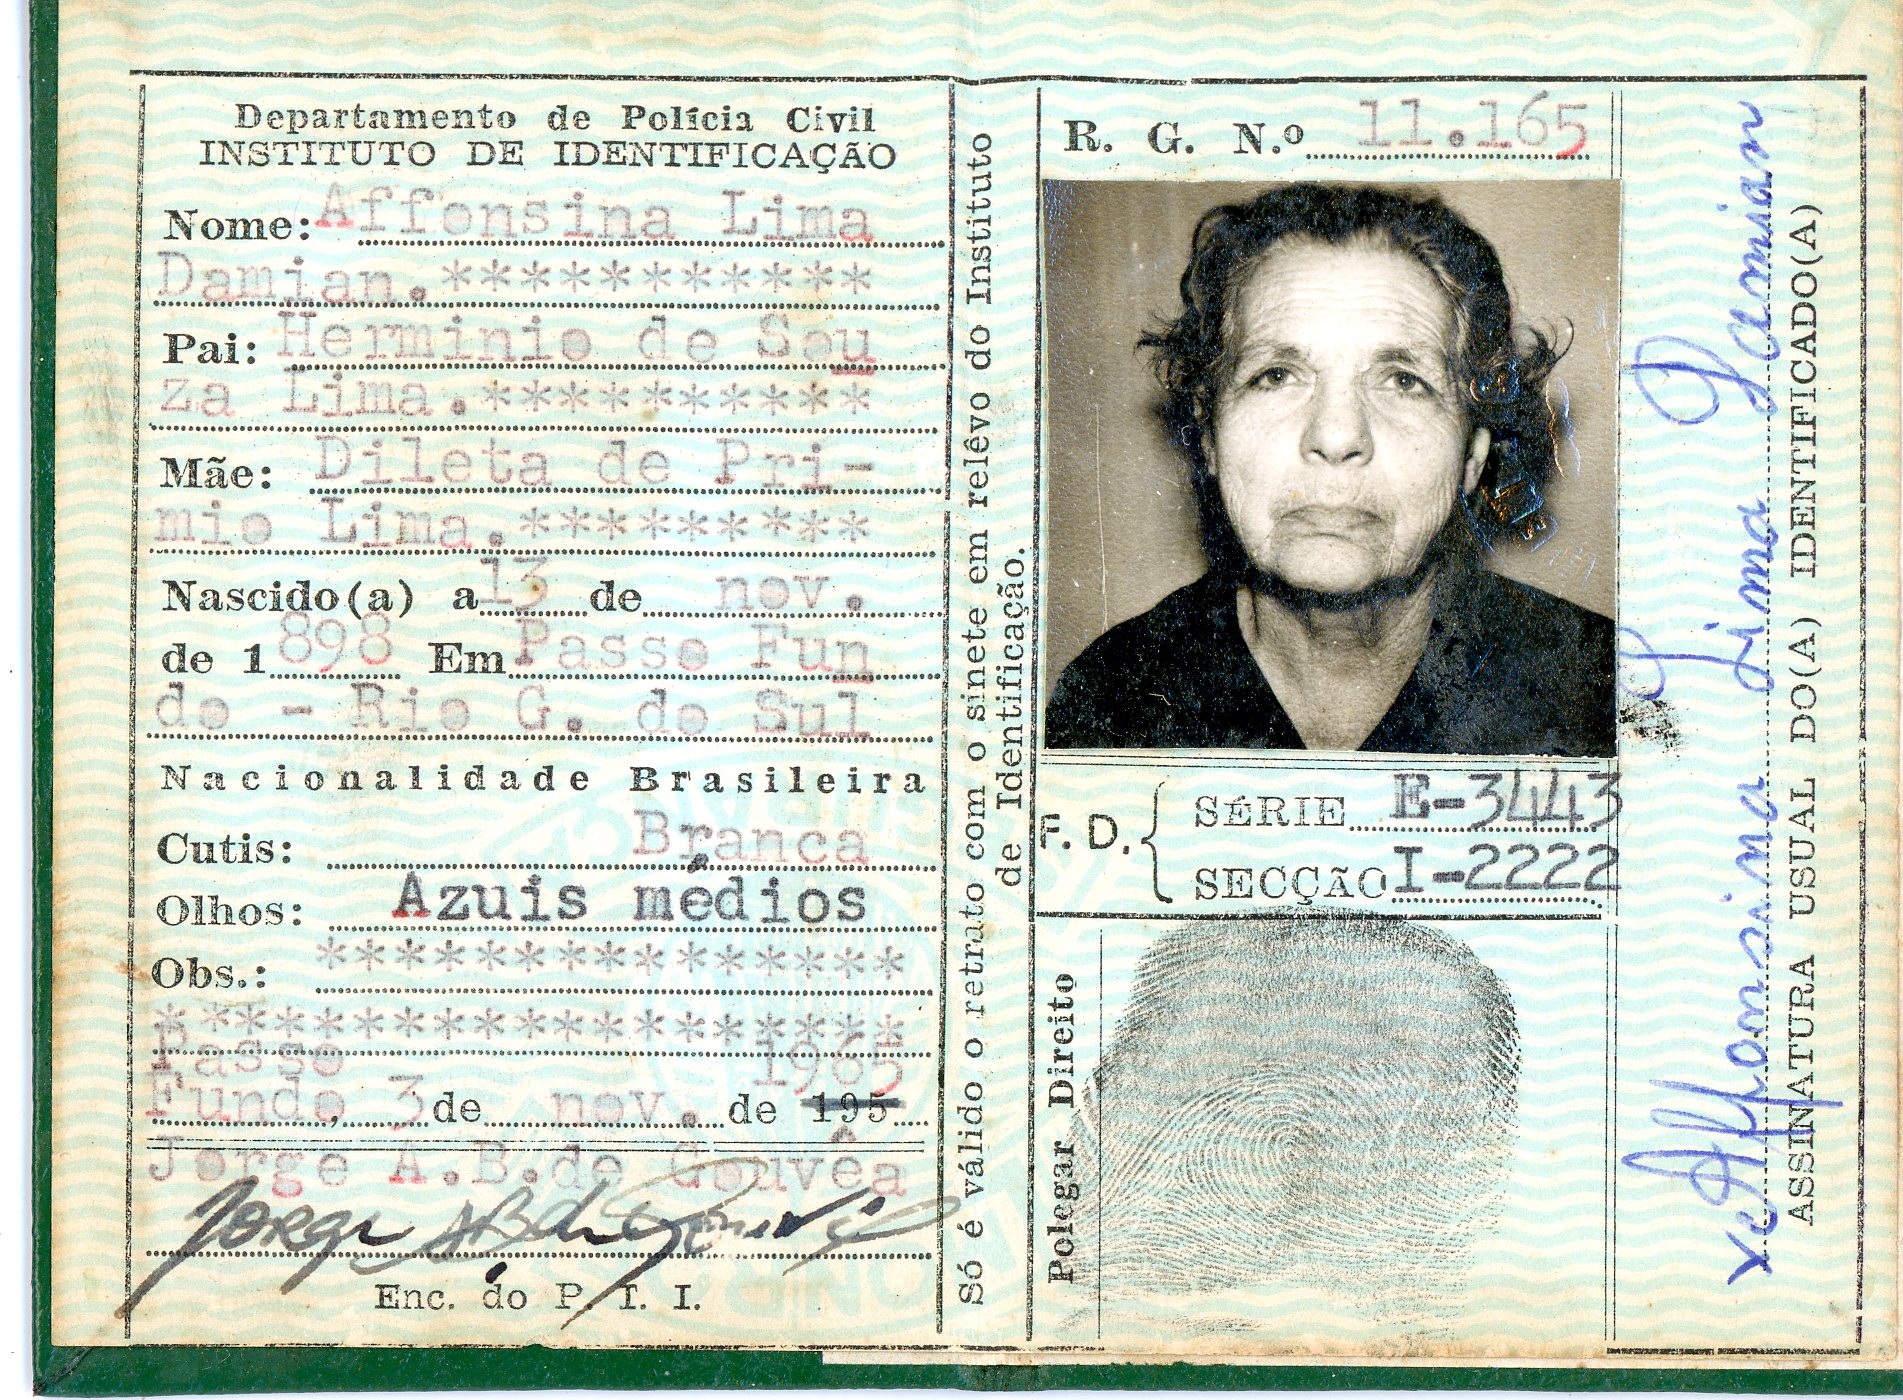 Departamento de Polícia Civil
INSTITUTO DE IDENTIFICAÇÃO
Nome: Affonsina Lima
Damian.***********
Pai: Herminio de Sou
za Lima.**********
Mãe: Dileta de Pri-
mio Lima.*********
Nascido(a) a 13 de nov.
de 1 898 Em Passo Fun
do - Rio G. do Sul
Nacionalidade Brasileira
Cutis: Branca
Olhos: Azuis médios
Obs.: ***************
*****************
Passo
1965
Fundo, 3 de nov. de 195
Jorge A.B.de Gouvêa
Enc. do P. I. I.
Só é válido o retrato com o sinete em relêvo do Instituto
de Identificação.
R. G. N.º 11.165
F. D.
SÉRIE E-3443
SECÇÃO I-2222
Polegar Direito
Affonsina Lima Damian
ASSINATURA USUAL DO(A) IDENTIFICADO(A)